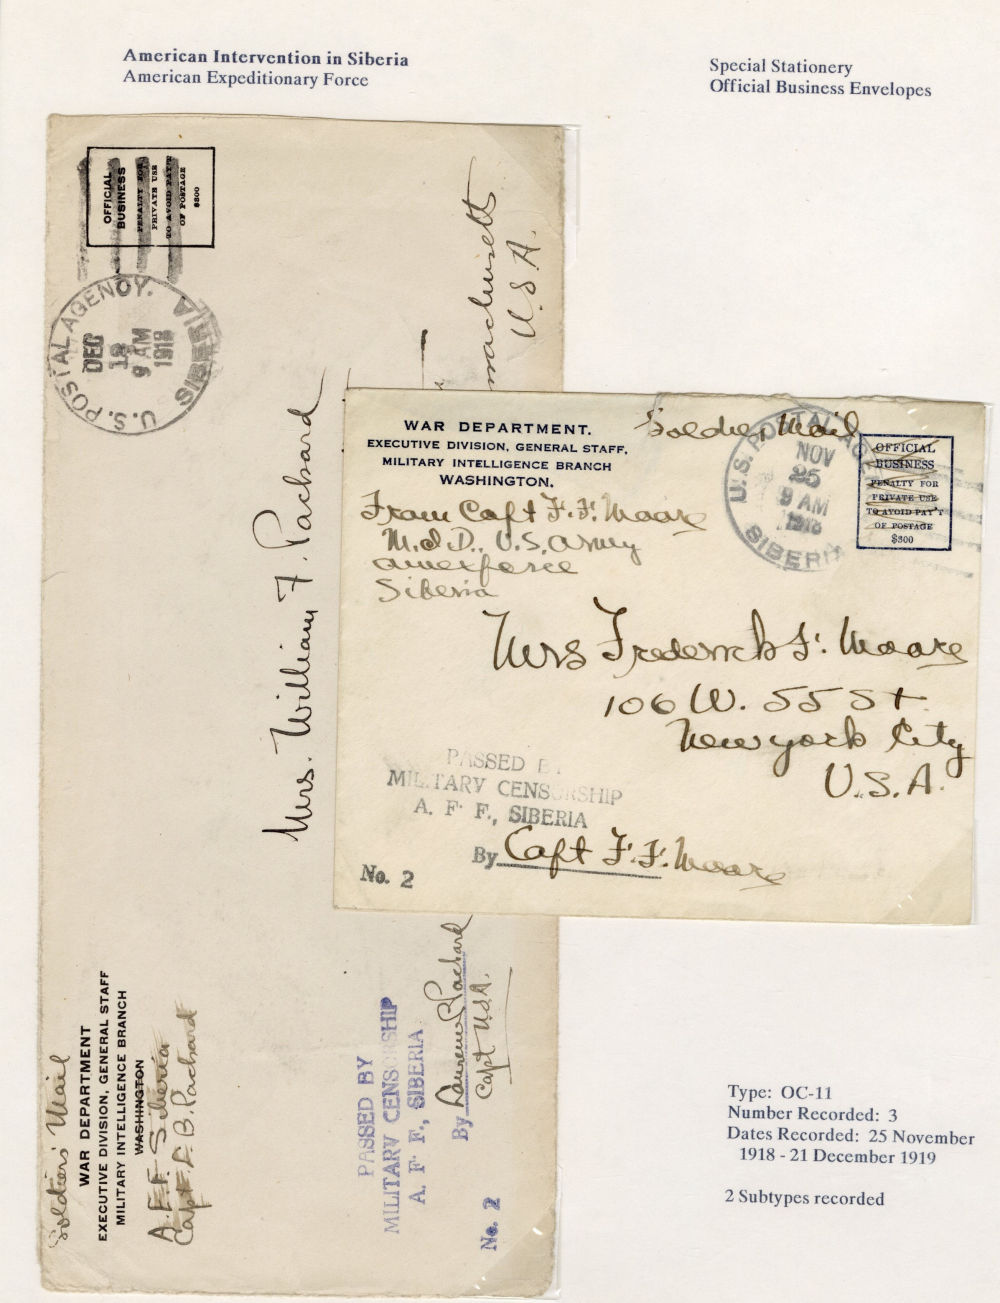 American Intervention in Siberia
American Expeditionary Force
Special Stationery
Official Business Envelopes
OFFICIAL
BUSINESS
PENALTY FOR
PRIVATE USE
TO AVOID PAY'T
OF POSTAGE
$300
U.S. POSTAL AGENCY.
DEC
9 AM
1918
SIBERIA
Mrs. William F. Packard
U.S.A.
Soldiers' Mail
WAR DEPARTMENT
EXECUTIVE DIVISION, GENERAL STAFF
MILITARY INTELLIGENCE BRANCH
WASHINGTON
A.E.F. Siberia
PASSED BY
MILITARY CENSORSHIP
A. F F., SIBERIA
By Packard
Capt U.S.A.
No. 2
WAR DEPARTMENT.
EXECUTIVE DIVISION, GENERAL STAFF,
MILITARY INTELLIGENCE BRANCH
WASHINGTON.
Soldier Mail
From Capt F. F. Moore
M.I.D., U.S. Army
Amexforce
Siberia
U.S. POSTAL
NOV
25
9 AM
1918
SIBERIA
OFFICIAL
BUSINESS
PENALTY FOR
PRIVATE USE
TO AVOID PAY'T
OF POSTAGE
$300
Mrs Frederick F. Moore
106 W. 55 St
New York City
U.S.A.
PASSED B
MILITARY CENSORSHIP
A. F F., SIBERIA
By Capt F. F. Moore
No. 2
Type: OC-11
Number Recorded: 3
Dates Recorded: 25 November
1918 - 21 December 1919
2 Subtypes recorded